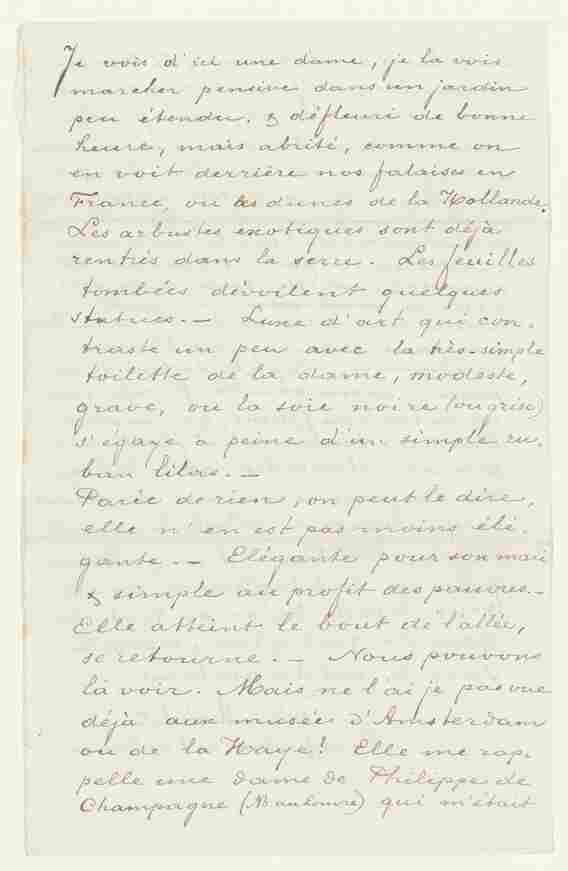 Je vois d'ici une dame, je la vois
marcher pensive dans un jardin
peu étendu. & défleuri de bonne
heure, mais abrité, comme on
en voit derrière nos falaises en
France, ou les dunes de la Hollande.
Les arbustes exotiques sont déjà
rentrés dans la serre. Les feuilles
tombées dévoilent quelques
statues. — Luxe d'art qui con-
traste un peu avec la très-simple
toilette de la dame, modeste,
grave, ou la soie noire (ou grise)
s'égaye a peine d'un simple ru-
ban lilas. —
Parée de rien, on peut le dire,
elle n'en est pas moins élé-
gante. — Elégante pour son mari
& simple au profit des pauvres. —
Elle atteint le bout de l'allée,
se retourne. — Nous pouvons
la voir. Mais ne l'ai je pas vue
déjà aux musées d'Amsterdam
ou de la Haye! Elle me rap-
pelle une dame de Philippe de
Champagne (NB au Louvre) qui m'était